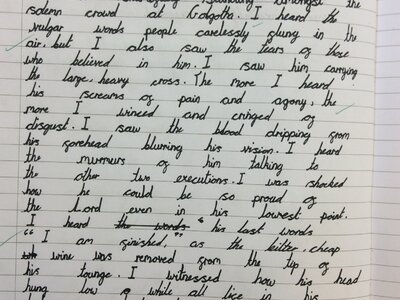 standing amongst the
solemn crowd at Golgotha. I heard the
vulgar words people carelessly flung in the
air, but I also saw the tears of those
who believed in him. I saw him carrying
the large, heavy cross. The more I heard
his screams of pain and agony, the
more I winced and cringed of
disgust. I saw the blood dripping from
his forehead blurring his vision. I heard
the murmurs of him talking to
the other two executions. I was shocked
how he could be so proud of
the Lord even in his lowest point.
I heard the words " his last words
" I am finished, " as the bitter, cheap
wine was removed from the tip of
his tounge. I witnessed how his head
hung low, while all lice in his